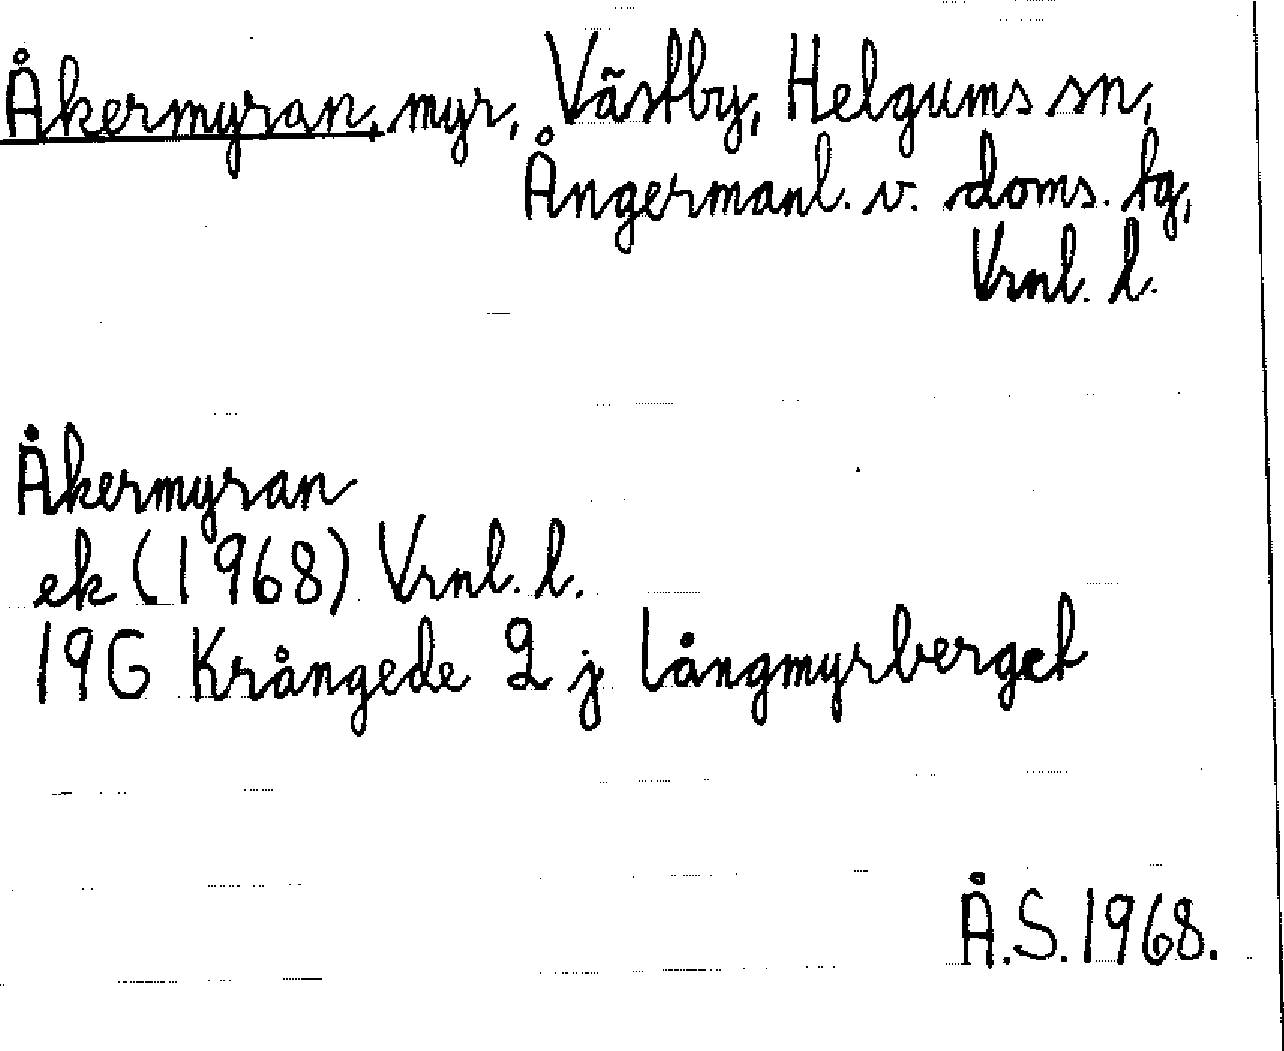 Åkermyran, myr, Västby, Helgums sn,
Ångermanl. v. doms. tg,
Vrnl. l.
Åkermyran
ek (1968) Vrnl. l.
19G Krångede 2 j Långmyrberget
Å.S. 1968.